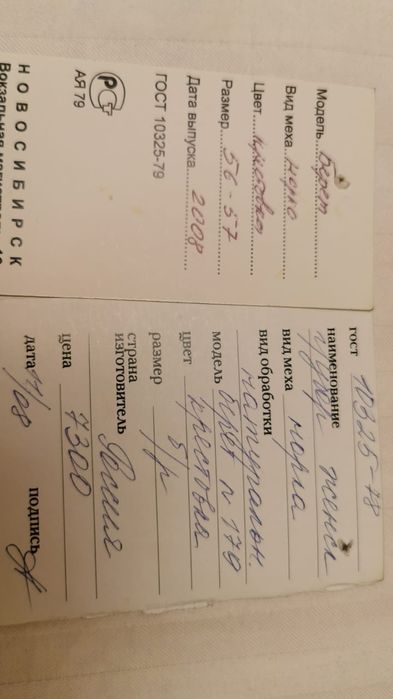 Модель Берет
Вид меха норка
Цвет крестовка
Размер 56-57
Дата выпуска 2008
ГОСТ 10325-79
РСТ
АЯ 79
НОВОСИБИРСК
Вокзальная магистраль,
гост 10325-78
наименование
женск
вид меха норка
вид обработки
натуральн.
модель берет N 179
цвет крестовка
размер б/р
страна
изготовитель Россия
цена 7300
дата 11/08 подпись